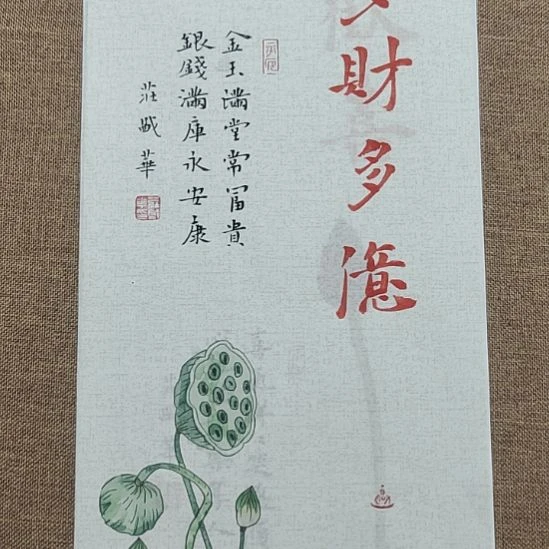 財多億
金玉滿堂常富貴
銀錢滿庫永安康
莊戩華